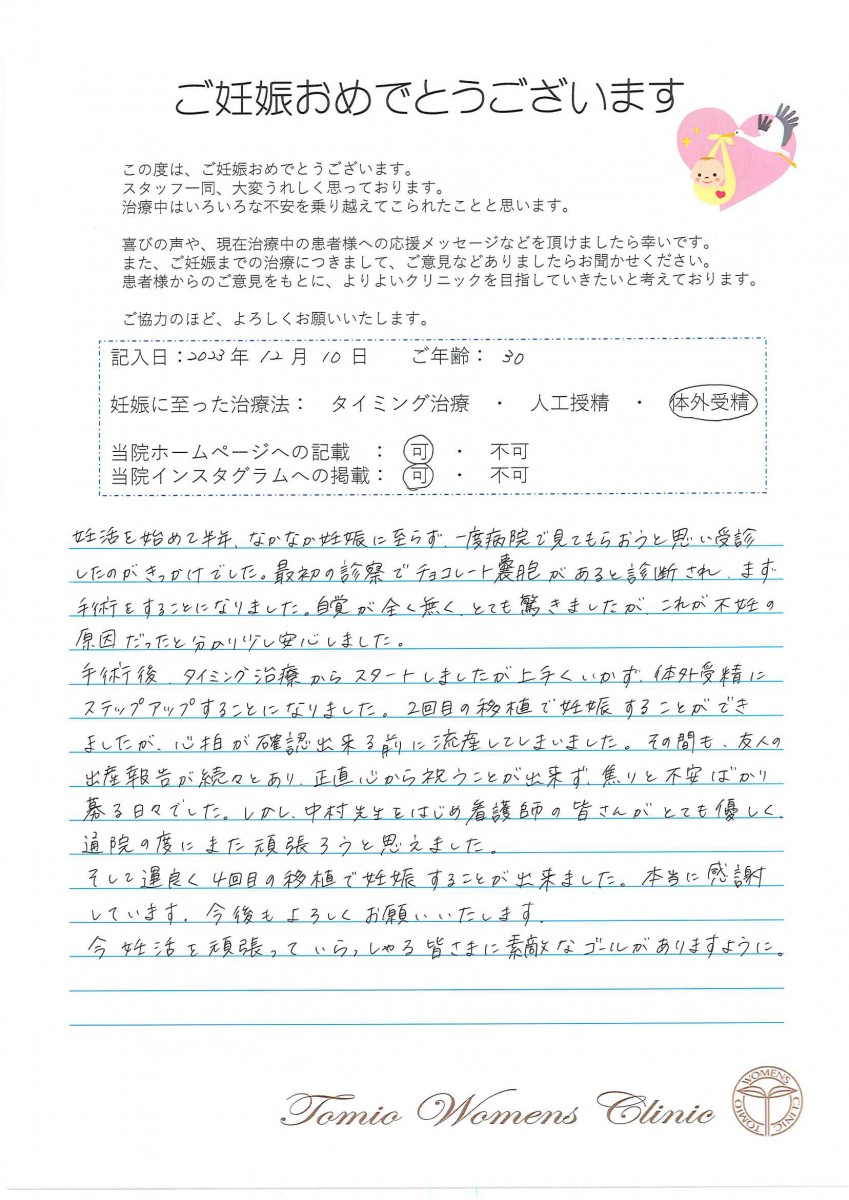 ご妊娠おめでとうございます
この度は、ご妊娠おめでとうございます。
スタッフ一同、大変うれしく思っております。
治療中はいろいろな不安を乗り越えてこられたことと思います。
喜びの声や、現在治療中の患者様への応援メッセージなどを頂けましたら幸いです。
また、ご妊娠までの治療につきまして、ご意見などありましたらお聞かせください。
患者様からのご意見をもとに、よりよいクリニックを目指していきたいと考えております。
ご協力のほど、よろしくお願いいたします。
記入日：2023年 12月 10日 ご年齢： 30
妊娠に至った治療法： タイミング治療 ・ 人工授精 ・ 体外受精
当院ホームページへの記載 ： 可 ・ 不可
当院インスタグラムへの掲載： 可 ・ 不可
妊活を始めて半年、なかなか妊娠に至らず、一度病院で見てもらおうと思い受診
したのがきっかけでした。最初の診察でチョコレート嚢胞があると診断され、まず
手術をすることになりました。自覚が全く無く、とても驚きましたが、これが不妊の
原因だったと分かり少し安心しました。
手術後、タイミング治療からスタートしましたが上手くいかず、体外受精に
ステップアップすることになりました。2回目の移植で妊娠することができ
ましたが、心拍が確認出来る前に流産してしまいました。その間も、友人の
出産報告が続々とあり、正直心から祝うことが出来ず、焦りと不安ばかり
募る日々でした。しかし、中村先生をはじめ看護師の皆さんがとても優しく、
通院の度にまた頑張ろうと思えました。
そして運良く4回目の移植で妊娠することが出来ました。本当に感謝
しています。今後もよろしくお願いいたします。
今妊活を頑張っていらっしゃる皆さまに素敵なゴールがありますように。
Tomio Womens Clinic
TOMIO WOMENS CLINIC